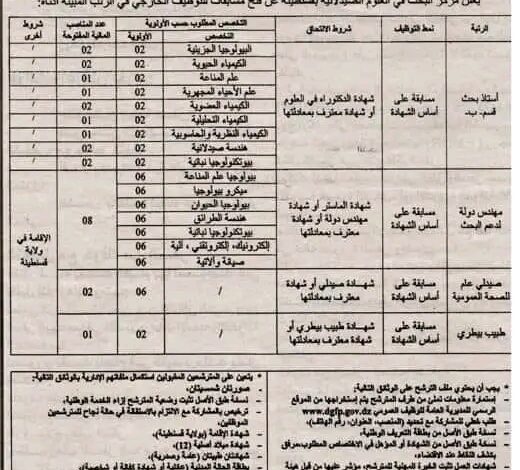 يعلن مركز البحث في العلوم الصيدلانية بقسنطينة عن فتح مسابقات للتوظيف الخارجي في الرتب المبينة أدناه:
الرتبة | نمط التوظيف | شروط الالتحاق | التخصص المطلوب حسب الأولوية | عدد المناصب المالية المفتوحة | شروط أخرى
التخصص | الأولوية
أستاذ بحث قسم -ب- | مسابقة على أساس الشهادة | شهادة الدكتوراه في العلوم أو شهادة معترف بمعادلتها
البيولوجيا الجزيئية | 02 | 02 | /
الكيمياء الحيوية | 02 | 02 | /
علم المناعة | 02 | 01 | /
علم الأحياء المجهرية | 02 | 02 | /
الكيمياء العضوية | 02 | 02 | /
الكيمياء التحليلية | 02 | 01 | /
الكيمياء النظرية والحاسوبية | 02 | 01 | /
هندسة صيدلانية | 02 | 02 | /
بيوتكنولوجيا نباتية | 02 | 02 | /
مهندس دولة لدعم البحث | مسابقة على أساس الشهادة | شهادة الماستر أو شهادة مهندس دولة أو شهادة معترف بمعادلتها | 08 | الإقامة في ولاية قسنطينة
بيولوجيا علم المناعة | 06
ميكرو بيولوجيا | 06
بيولوجيا الحيوان | 06
هندسة الطرائق | 06
بيوتكنولوجيا نباتية | 06
إلكترونيك، إلكتروتقني، آلية | 06
صيانة وآلاتية | 06
صيدلي عام للصحة العمومية | مسابقة على أساس الشهادة | شهادة صيدلي أو شهادة معترف بمعادلتها | / | 06 | 02
طبيب بيطري | مسابقة على أساس الشهادة | شهادة طبيب بيطري أو شهادة معترف بمعادلتها | / | 02 | 01
* يجب أن يحتوي ملف الترشح على الوثائق التالية:
- إستمارة معلومات تملئ من طرف المترشح يتم إستخراجها من الموقع
الرسمي للمديرية العامة للوظيف العمومي www.dgfp.gov.dz
- طلب خطي للمشاركة مع تحديد (المنصب، العنوان، رقم الهاتف)،
- نسخة طبق الأصل من بطاقة التعريف الوطنية،
- نسخة طبق الأصل من الشهادة أو المؤهل في الاختصاص المطلوب مرفق
بكشف النقاط عند الاقتضاء،
* يتعين على المترشحين المقبولين استكمال ملفاتهم الإدارية بالوثائق التالية:
- صورتان شمسيتان،
- نسخة طبق الأصل تثبت وضعية المترشح إزاء الخدمة الوطنية،
- ترخيص بالمشاركة مع الالتزام بالاستقالة في حالة نجاح للمترشحين
الموظفين،
- شهادة الإقامة (بولاية قسنطينة)،
- شهادة ميلاد أصلية (12)،
- شهادتان طبيتان (عامة وصدرية)،